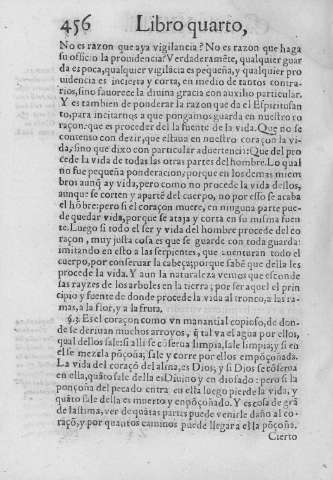 456 Libro quarto,
No es razon que aya vigilancia? No es razon que haga
su officio la prouidencia? Verdaderamẽte, qualquier guar
da es poca, qualquier vigilãcia es pequeña, y qualquier pro
uidencia es incierta y corta, en medio de tantos contra-
rios, sino fauorece la diuina gracia con auxilio particular.
Y es tambien de ponderar la razon que da el Espiritusan
to, para incitarnos a que pongamos guarda en nuestro co
raçon: que es proceder del la fuente de la vida. Que no se
contento con dezir, que estaua en nuestro coraçon la vi-
da, sino que dixo con particular aduertencia: Que del pro
cede la vida de todas las otras partes del hombre. Lo qual
no fue pequeña ponderacion; porque en los demas miem
bros aunq̃ ay vida, pero como no procede la vida dellos,
aunque se corten y aparté del cuerpo, no por esso se acaba
el hõbre: pero si el coraçon muere, en ninguna parte pue-
de quedar vida, porque se ataja y corta en su misma fuen
te. Luego si todo el ser y vida del hombre procede del co
raçon, muy justa cosa es que se guarde con toda guarda:
imitando en esto a las serpientes, que auenturan todo el
cuerpo, por conseruar la cabeça; porque sabẽ que della les
procede la vida. Y aun la naturaleza vemos que esconde
las rayzes de los arboles en la tierra; por ser aquel el prin
cipio y fuente de donde procede la vida al tronco, a las ra-
mas, a la flor, y a la fruta.
§.3. Es el coraçon como vn manantial copioso, de don-
de se deriuan muchos arroyos, q̃ tal va el agua por ellos,
qual dellos sale: si alli se cõserua limpia, sale limpia; y si en
el se mezcla põçoña, sale y corre por ellos empõçoñada.
La vida del coraçõ del alma, es Dios, y si Dios se cõserua
en ella, quãto sale della es Diuino y endiosado: pero si la
ponçoña del pecado entra en ella luego pierde la vida, y
quãto sale della es muerto y enpõçoñado. Y es cosa de grã
de lastima, ver de quãtas partes puede venirle daño al co-
raçõ, y por quantos caminos puede llegar a el la põçoña.
Cierto